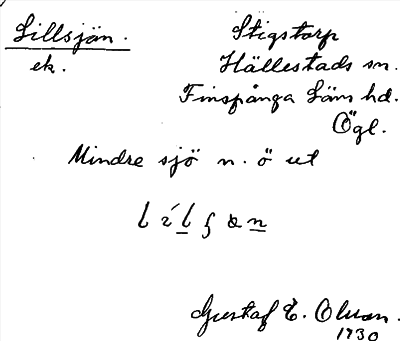 Lillsjön.
ek.
Stigstorp
Hällestads sn.
Finspånga Läns hd.
Ögl.
Mindre sjö n. ö ut
Gustaf E. Olsson.
1930